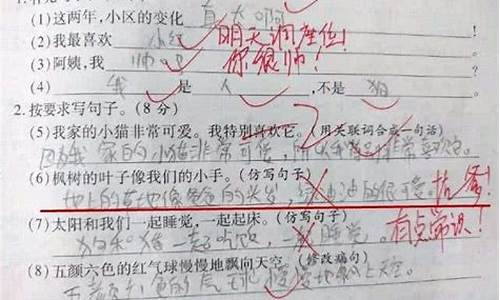 (1)这两年,小区的变化 真大啊
(2)我最喜欢 小红 明天调座位!
(3)阿姨,我 帅吧 你很帅!
(4) 我 是 人 ,不是 狗
2.按要求写句子。(8 分)
(5)我家的小猫非常可爱。我特别喜欢它。(用关联词合成一句话)
因为我家的小猫非常可爱,所以我特别非常喜欢它。
(6)枫树的叶子像我们的小手。(仿写句子)
地上的草地像爸爸的头发,绿油油的很可爱。 找爹!
(7)太阳和我们一起睡觉,一起起床。(仿写句子)
狗和猪一起吃饭,一起睡觉。 有点常识!
(8)五颜六色的红气球慢慢地飘向天空。(修改病句)
五颜六色的气球慢慢地飘上天空。